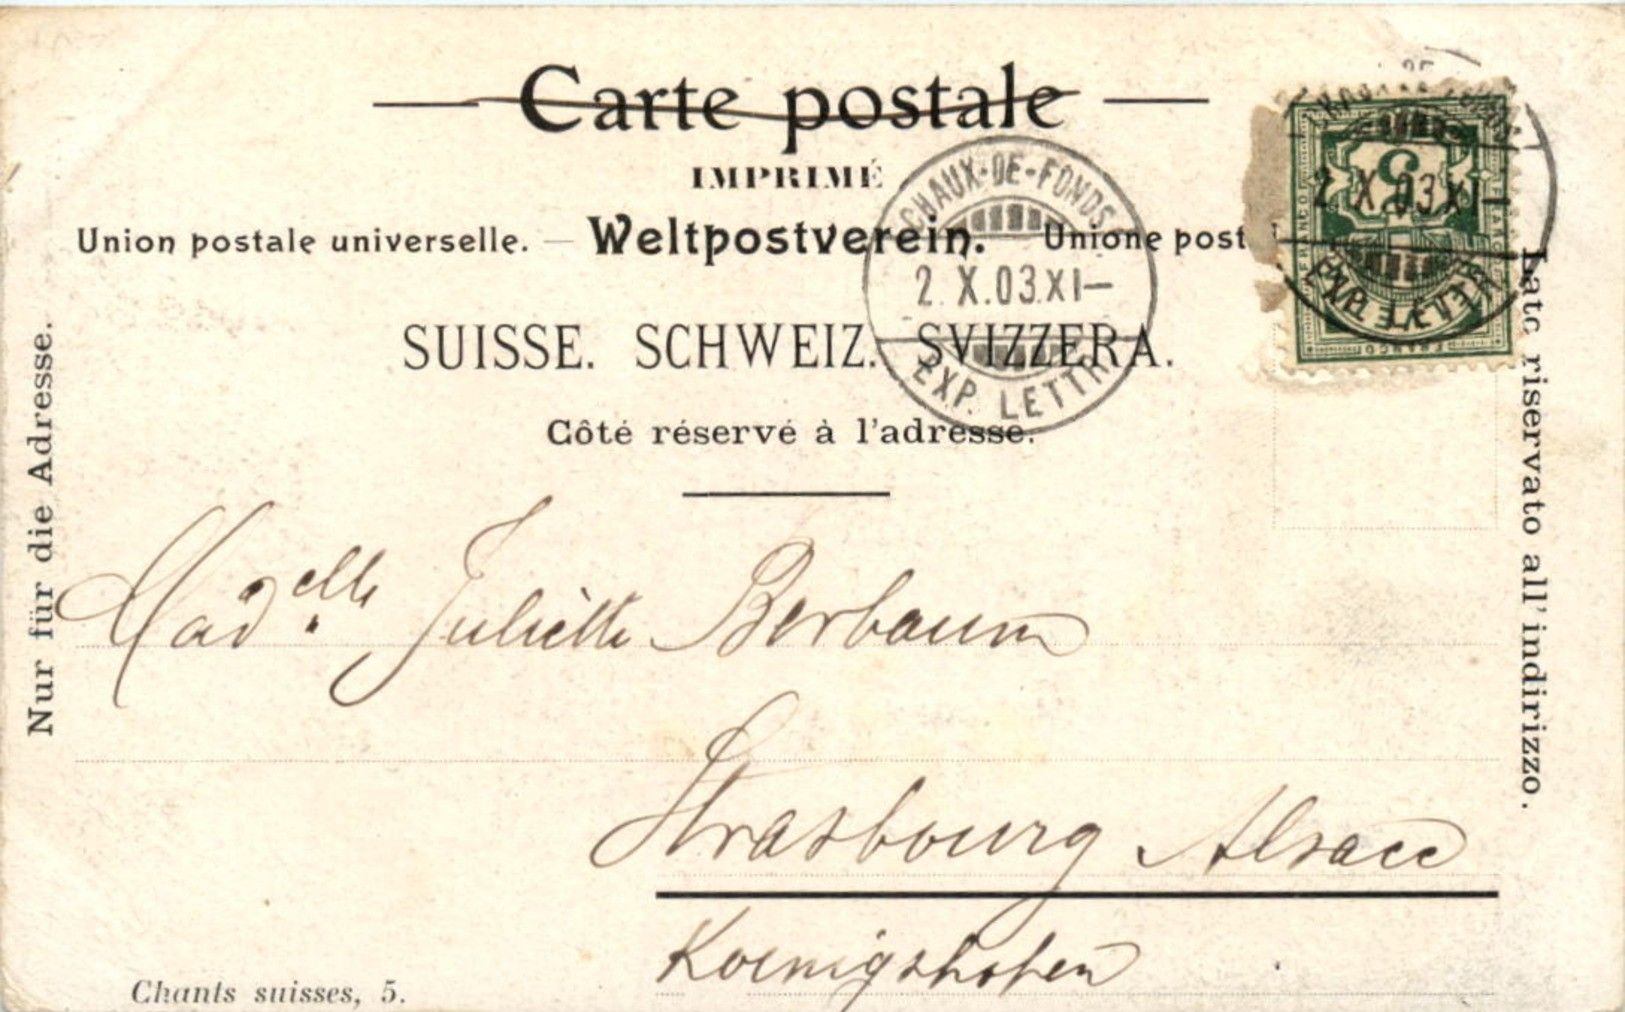 Carte postale
IMPRIMÉ
Union postale universelle. — Weltpostverein. Unione post
SUISSE. SCHWEIZ. SVIZZERA.
Côté réservé à l'adresse.
CHAUX-DE-FONDS
2.X.03.XI—
EXP. LETTR.
5
FRANCO
2.X.03.XI—
EXP. LETTR.
Nur für die Adresse.
Lato riservato all' indirizzo.
Madelle Juliette Berbaum
Strasbourg Alsace
Koenigshofen
Chants suisses, 5.